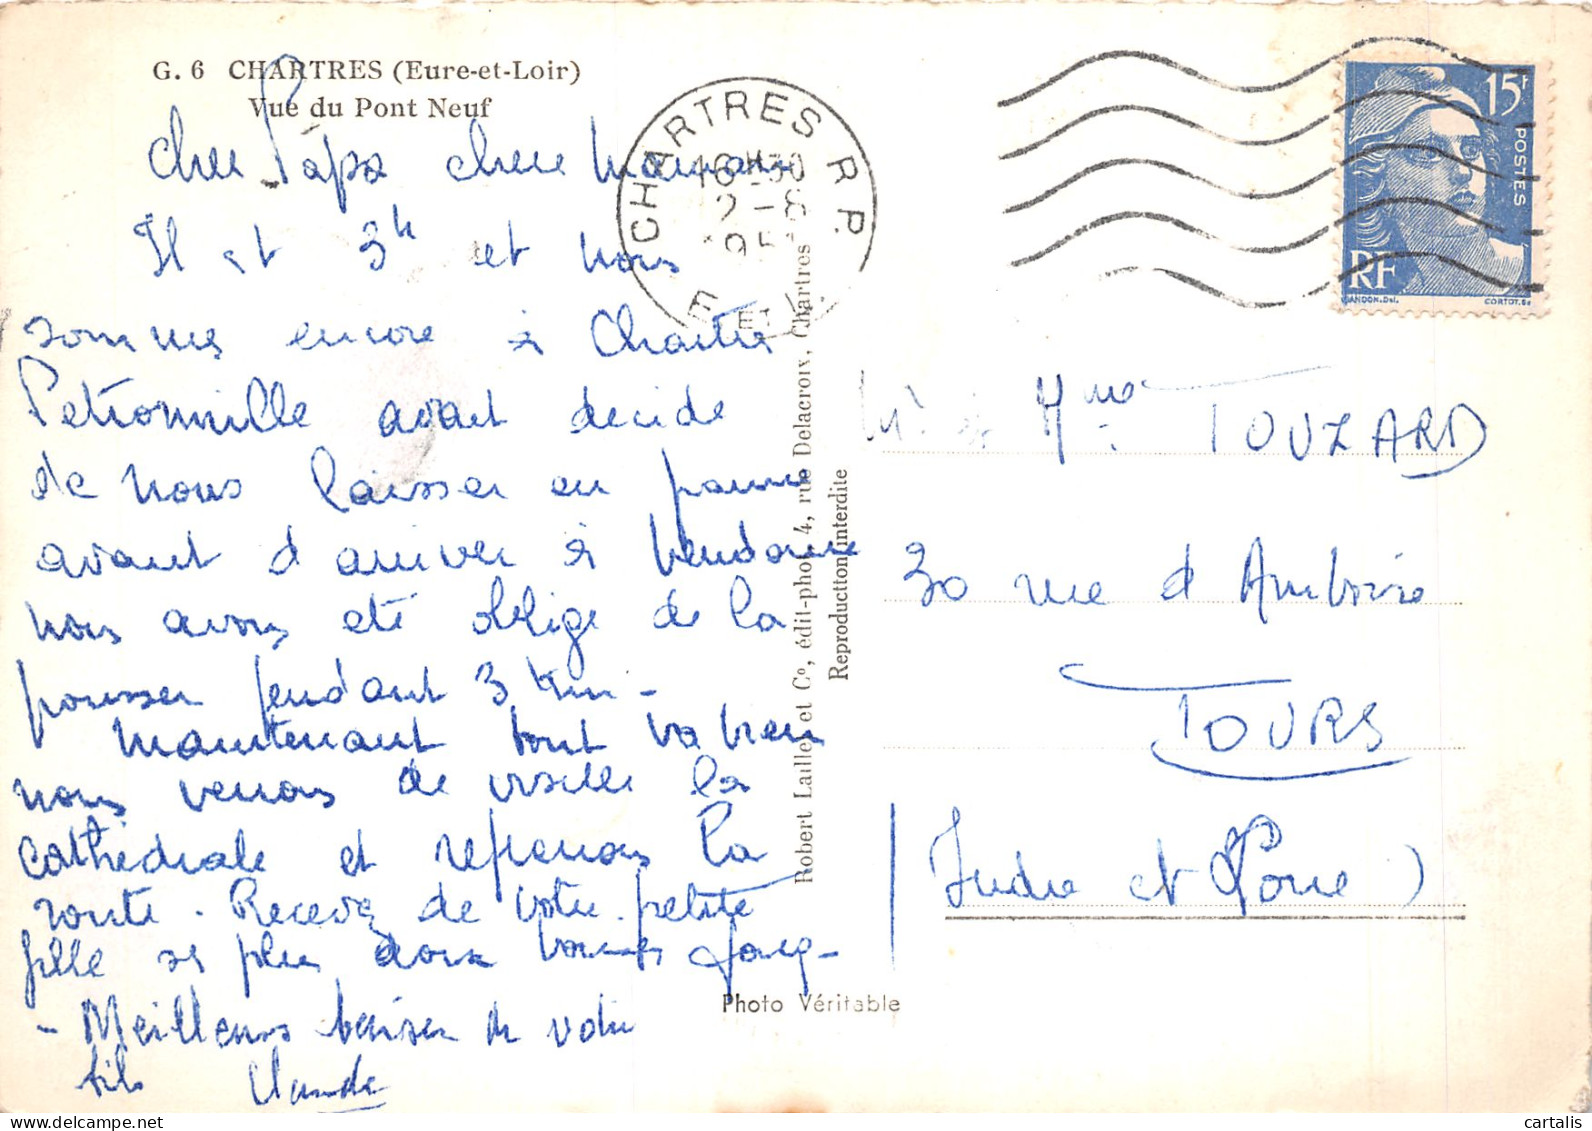 G. 6 CHARTRES (Eure-et-Loir)
Vue du Pont Neuf
Cher Papa chere Maman
Il est 3h et nous
sommes encore à Chartres
Petronille ayant decidé
de nous laisser en panne
avant d arriver à Vendome
nous avons eté obligé de la
pousser pendant 3 km -
Maintenant tout va bien
nous venons de visiter la
cathédrale et reprenons la
route. Recevez de votre petite
fille ses plus doux
- Meilleurs baisers de votre
fils Claude
CHARTRES R.P.
16 H30
2-8
195
E. ET L.
15F
POSTES
RF
GANDON.Del.
CORTOT.Sc
Robert Laillet et Co, édit-phot, 4, rue Delacroix, Chartres
Reproduction interdite
Mr et Mme TOUZARD
30 rue d Amboise
TOURS
(Indre et Loire)
Photo Véritable
cartalis